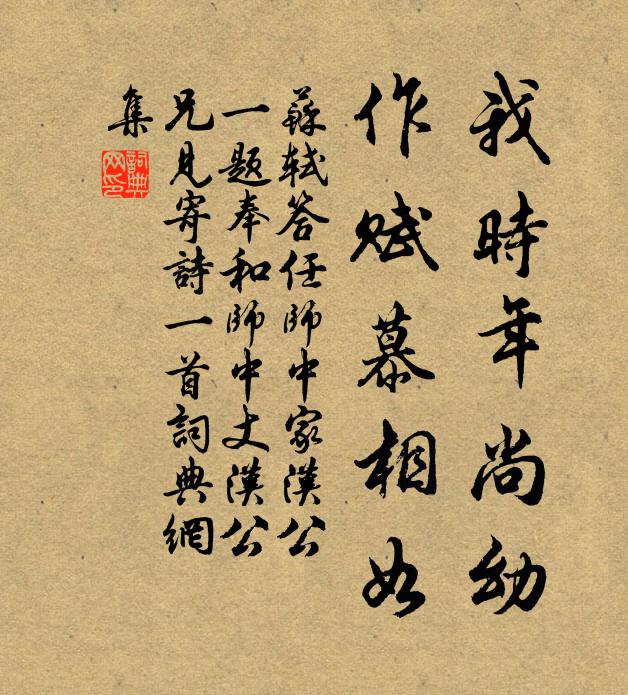 我時年尚幼
作赋慕相如
蘇軾答任師中家漢公
一题奉和師中丈漢公
兄見寄詩一首詞典網
集
詞典
网印